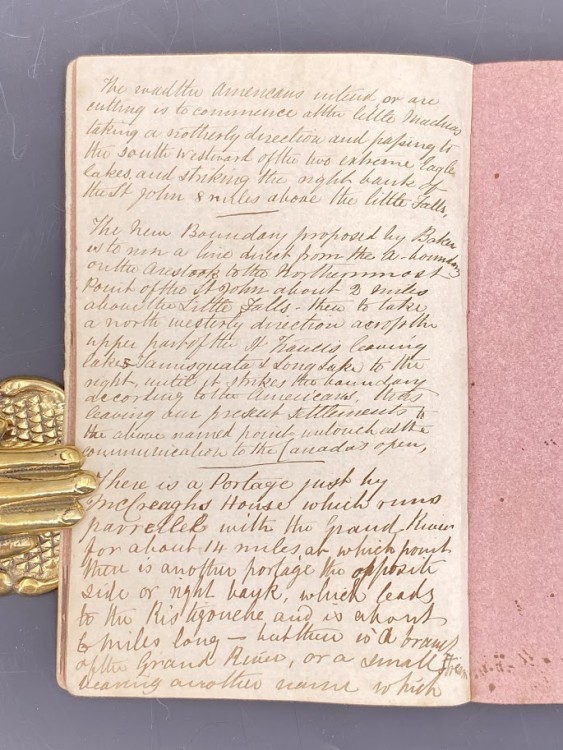 The road the Americans intend or are
cutting is to commence at the little Madwas
taking a notherly direction and passing to
the south westward of the two extreme Eagle
lakes, and striking the right bank of
the St John 8 miles above the little Falls,
The New Boundary proposed by Baker
is to run a line direct from the a-boundary
on the Arestook to the Northernmost
Point of the St John about 2 miles
above the Little Falls - then to take
a north westerly direction across the
upper part of the St Francis leaving
lakes Tamusquata & Long Lake to the
right, until it strikes the boundary
according to the Americans, thus
leaving our present settlements to
the above named points untouched & the
communication to the Canadas open,
There is a Portage just by
McCreaghs House which runs
parrellel with the Grand River
for about 14 miles, at which point
there is another portage the opposite
side or right bank, which leads
to the Ristigouche and is about
6 miles long - but there is a branch
of the Grand River, or a small Stream
bearing another name which